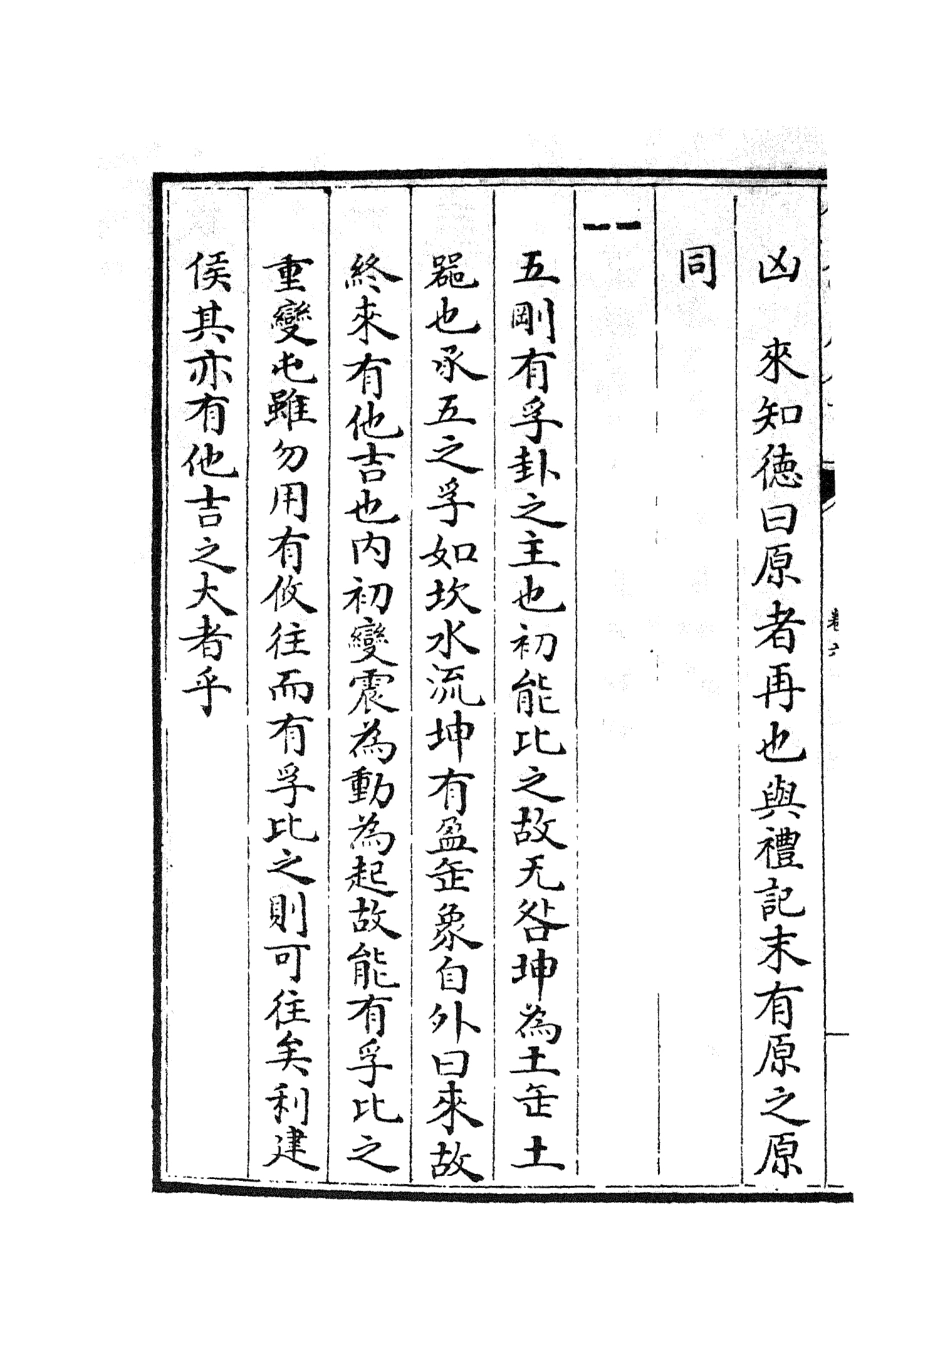 凶　來知德曰原者再也與禮記末有原之原
同
⚋
五剛有孚卦之主也初能比之故无咎坤為土缶土
器也承五之孚如坎水流坤有盈缶象自外曰來故
終來有他吉也内初變震為動為起故能有孚比之
重變屯雖勿用有攸往而有孚比之則可往矣利建
侯其亦有他吉之大者乎